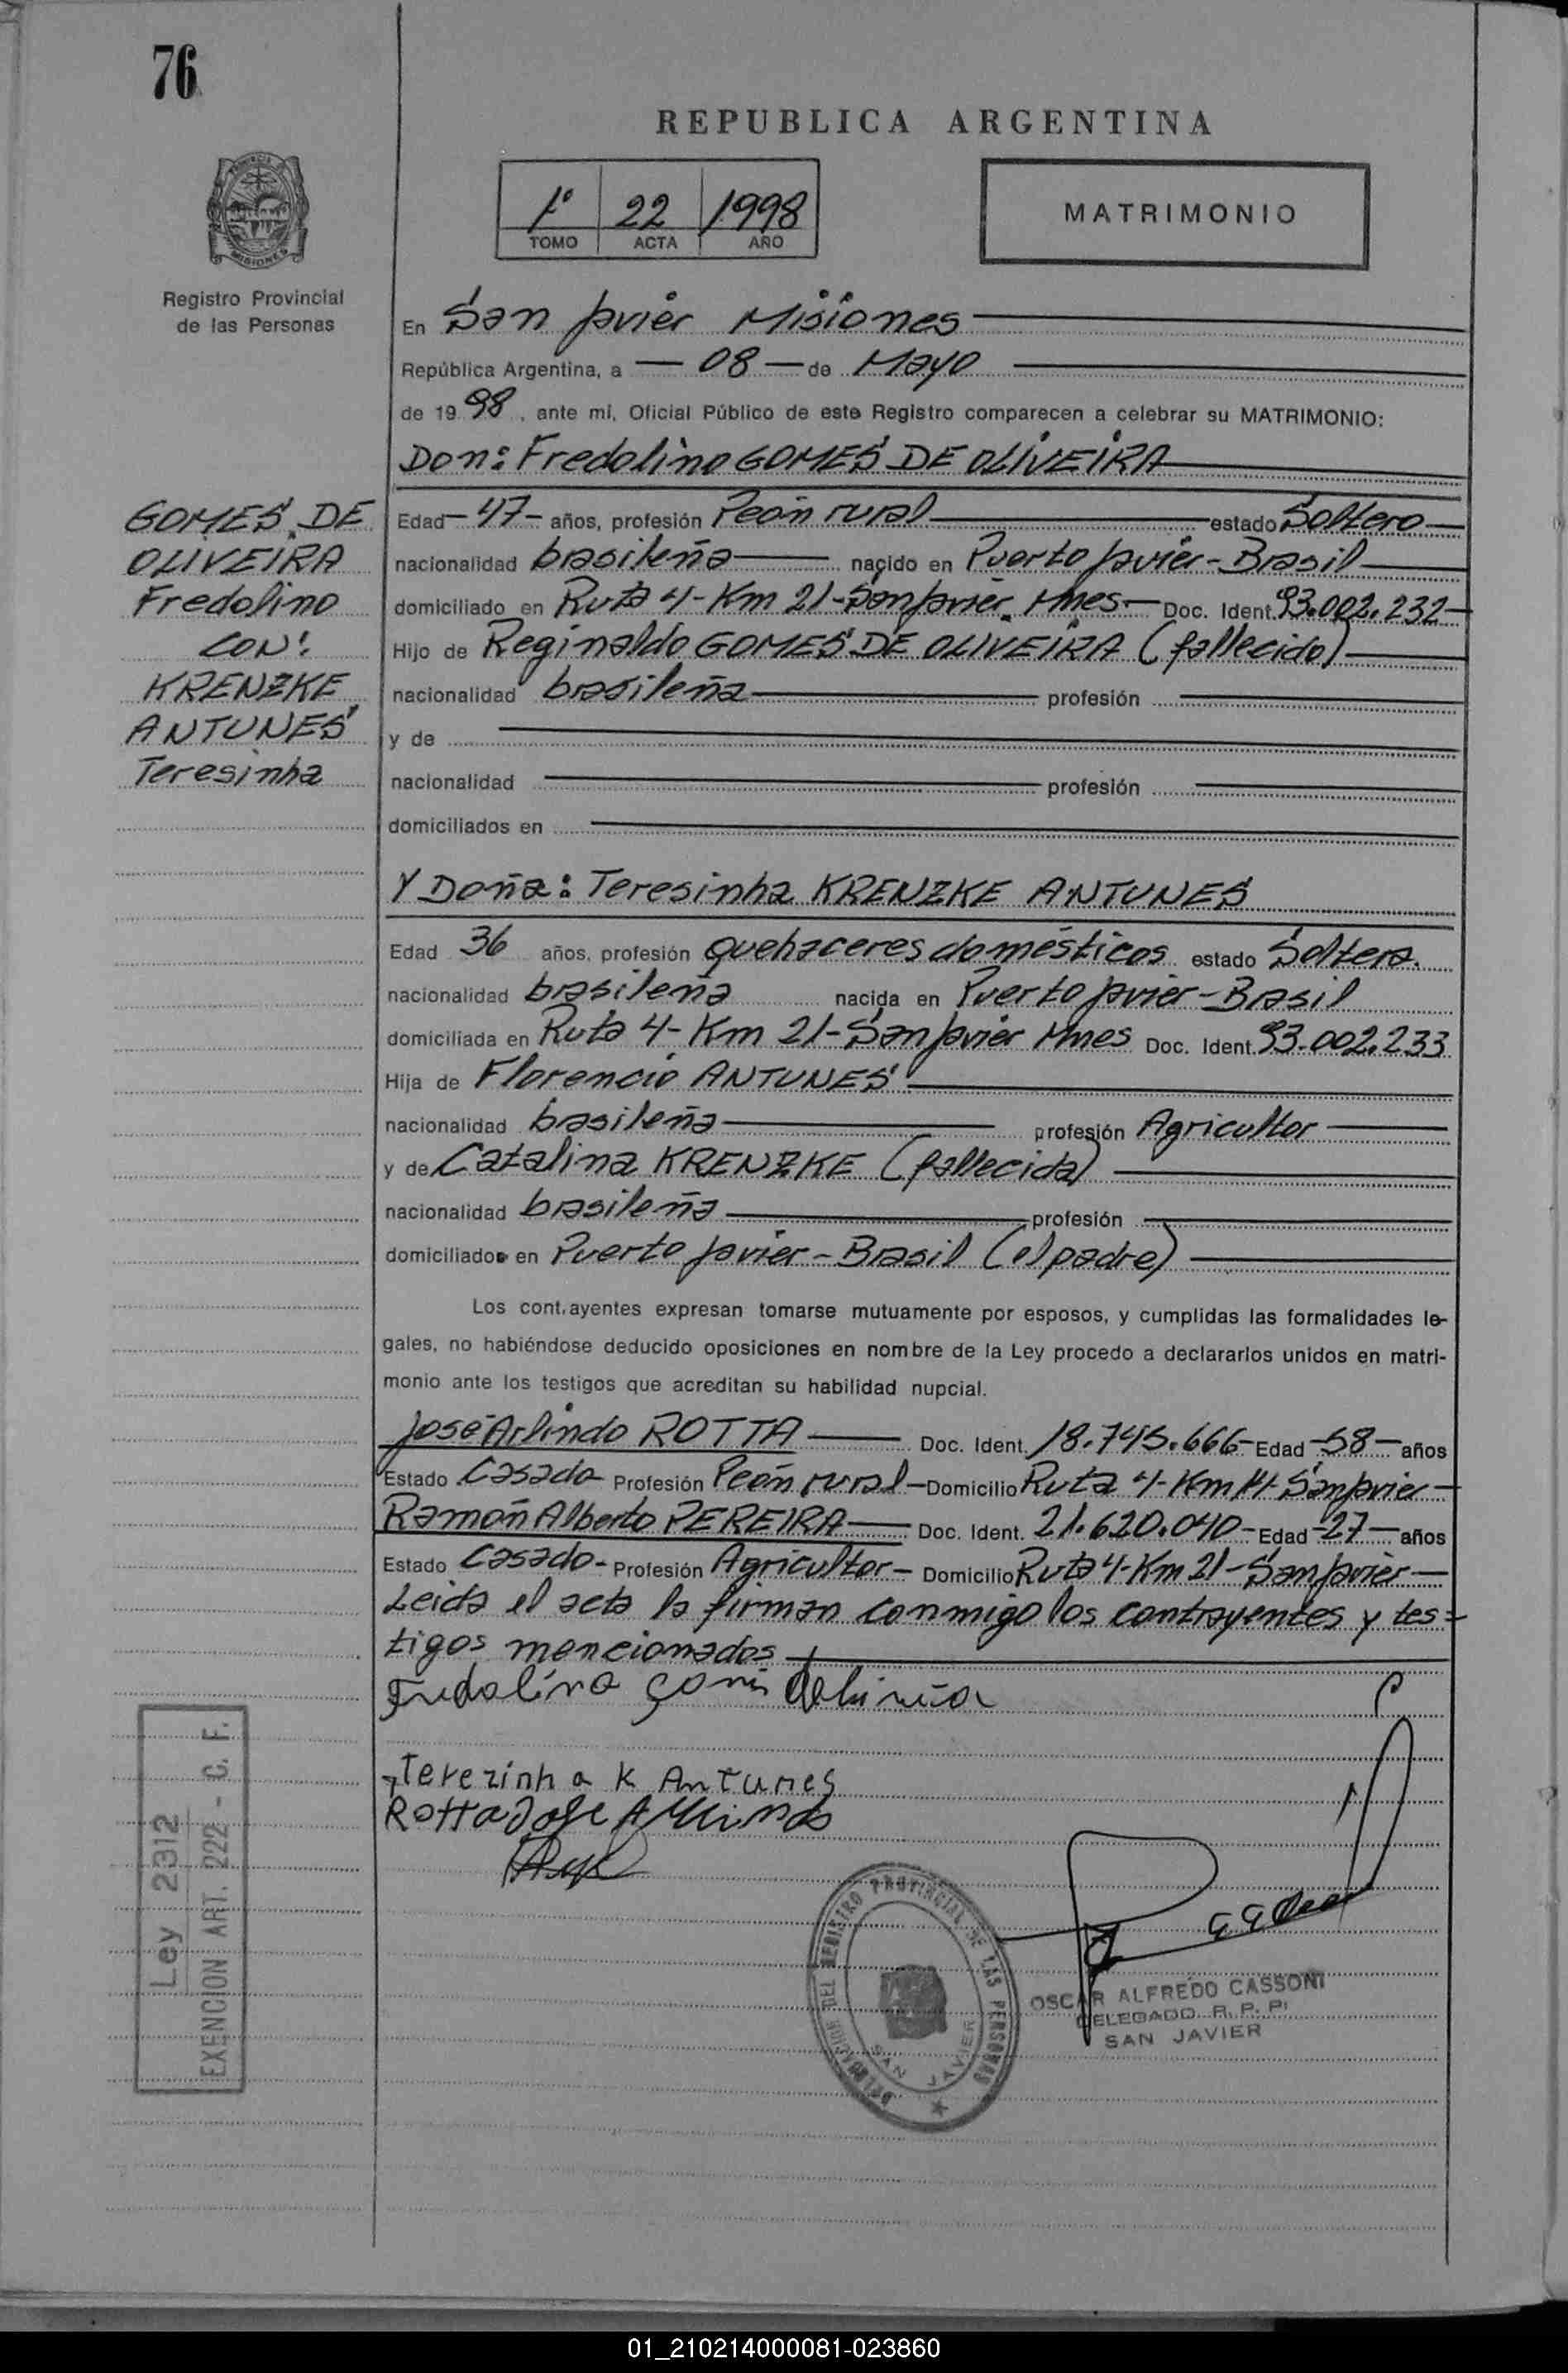 76
REPUBLICA ARGENTINA
1º 22 1998
TOMO ACTA AÑO
MATRIMONIO
Registro Provincial
de las Personas
En San Javier Misiones
República Argentina, a 08 de Mayo
de 1998, ante mí, Oficial Público de este Registro comparecen a celebrar su MATRIMONIO:
Don: Fredolino GOMES DE OLIVEIRA
GOMES DE
OLIVEIRA
Fredolino
CON:
KRENZKE
ANTUNES
Teresinha
Edad 47 años, profesión Peón rural estado Soltero
nacionalidad brasileña nacido en Puerto Javier - Brasil
domiciliado en Ruta 4 - Km 21 - San Javier Mnes. Doc. Ident. 93.002.232
Hijo de Reginaldo GOMES DE OLIVEIRA (fallecido)
nacionalidad brasileña profesión
y de
nacionalidad profesión
domiciliados en
Y Doña: Teresinha KRENZKE ANTUNES
Edad 36 años, profesión quehaceres domésticos estado Soltera.
nacionalidad brasileña nacida en Puerto Javier - Brasil
domiciliada en Ruta 4 - Km 21 - San Javier Mnes Doc. Ident. 93.002.233
Hija de Florencio ANTUNES
nacionalidad brasileña profesión Agricultor
y de Catalina KRENZKE (fallecida)
nacionalidad brasileña profesión
domiciliados en Puerto Javier - Brasil (el padre)
Los contrayentes expresan tomarse mutuamente por esposos, y cumplidas las formalidades le-
gales, no habiéndose deducido oposiciones en nombre de la Ley procedo a declararlos unidos en matri-
monio ante los testigos que acreditan su habilidad nupcial.
José Arlindo ROTTA Doc. Ident. 18.745.666 Edad 58 años
Estado Casado Profesión Peón rural Domicilio Ruta 4 - Km San Javier
Ramón Alberto PEREIRA Doc. Ident. 21.620.040 Edad 27 años
Estado Casado Profesión Agricultor Domicilio Ruta 4 - Km 21 - San Javier
Leida el acta la firman conmigo los contrayentes y tes=
tigos mencionados
Terezinha K Antunes
Rotta Jose
Ley 2312
EXENCION ART. 222 - C. F.
DELEGACION DEL REGISTRO PROVINCIAL DE LAS PERSONAS
SAN JAVIER
OSCAR ALFREDO CASSONI
DELEGADO R. P. P.
SAN JAVIER
01_210214000081-023860